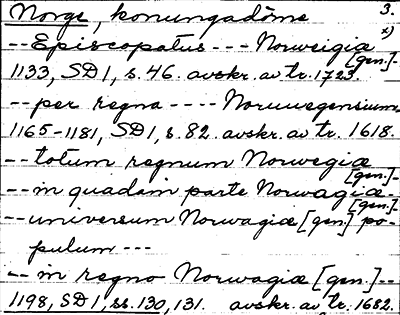 Norge, konungadöme 3.
x)
--Episcopatus --- Norweigiæ [gen.]-
1133, SD1, s.46. avskr. av tr. 1723.
--per regna ---- Noruuegensium
1165-1181, SD1, s.82. avskr. av tr. 1618.
--totum regnum Norwegiæ [gen.]-
--in quadam parte Norwagiæ [gen.]-
--universum Norwagiæ [gen.] po-
pulum ---
--in regno Norwagiæ [gen.]--
1198, SD1, ss.130, 131. avskr. av tr. 1682.